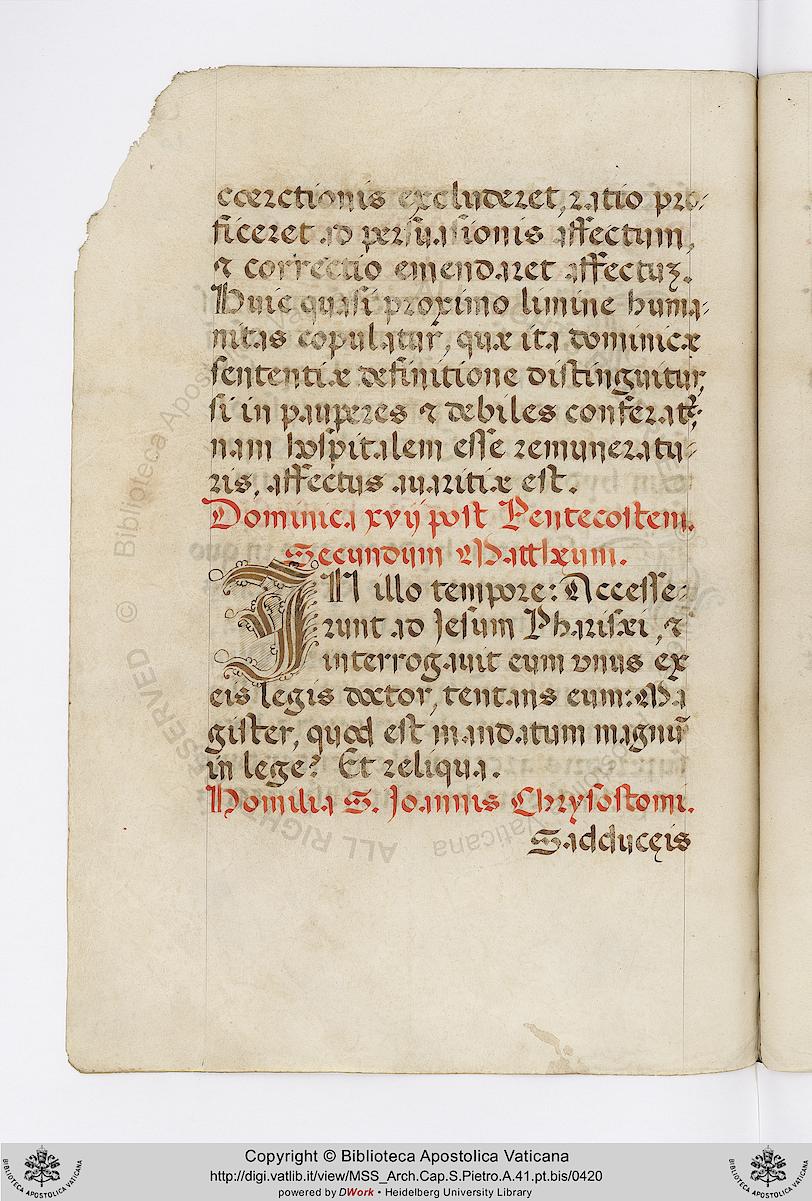 coerctionis excluderet, ratio pro-
ficeret ad persuasionis affectum,
& correctio emendaret affectuȝ.
Huic quasi proximo limine huma-
nitas copulatur, quæ ita dominicæ
sententiæ definitione distinguitur,
si in pauperes & debiles conferat̃;
nam hospitalem esse remuneratu-
ris, affectus auaritiæ est.
Dominica xvij post Pentecostem.
Secundum Matthæum.
IN illo tempore: Accesse-
runt ad Jesum Pharisæi, &
interrogauit eum vnus ex
eis legis doctor, tentans eum: Ma
gister, quod est mandatum magnũ
in lege? Et reliqua.
Homilia S. Joannis Chrysostomi.
Sadducęis
Biblioteca Apostolica Vaticana
© ALL RIGHTS RESERVED
Copyright © Biblioteca Apostolica Vaticana
http://digi.vatlib.it/view/MSS_Arch.Cap.S.Pietro.A.41.pt.bis/0420
powered by DWork • Heidelberg University Library
BIBLIOTECA APOSTOLICA VATICANA
BIBLIOTECA APOSTOLICA VATICANA